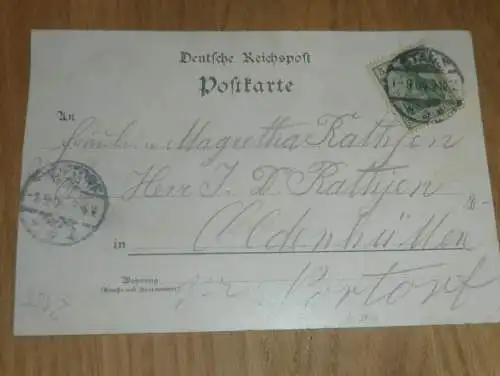 Deutsche Reichspost
Postkarte
An
Fräulein Magretha Rathjen
Herr J. D. Rathjen
in Oldenhütten
Wohnung
(Straße und Hausnummer)
per Bortorf